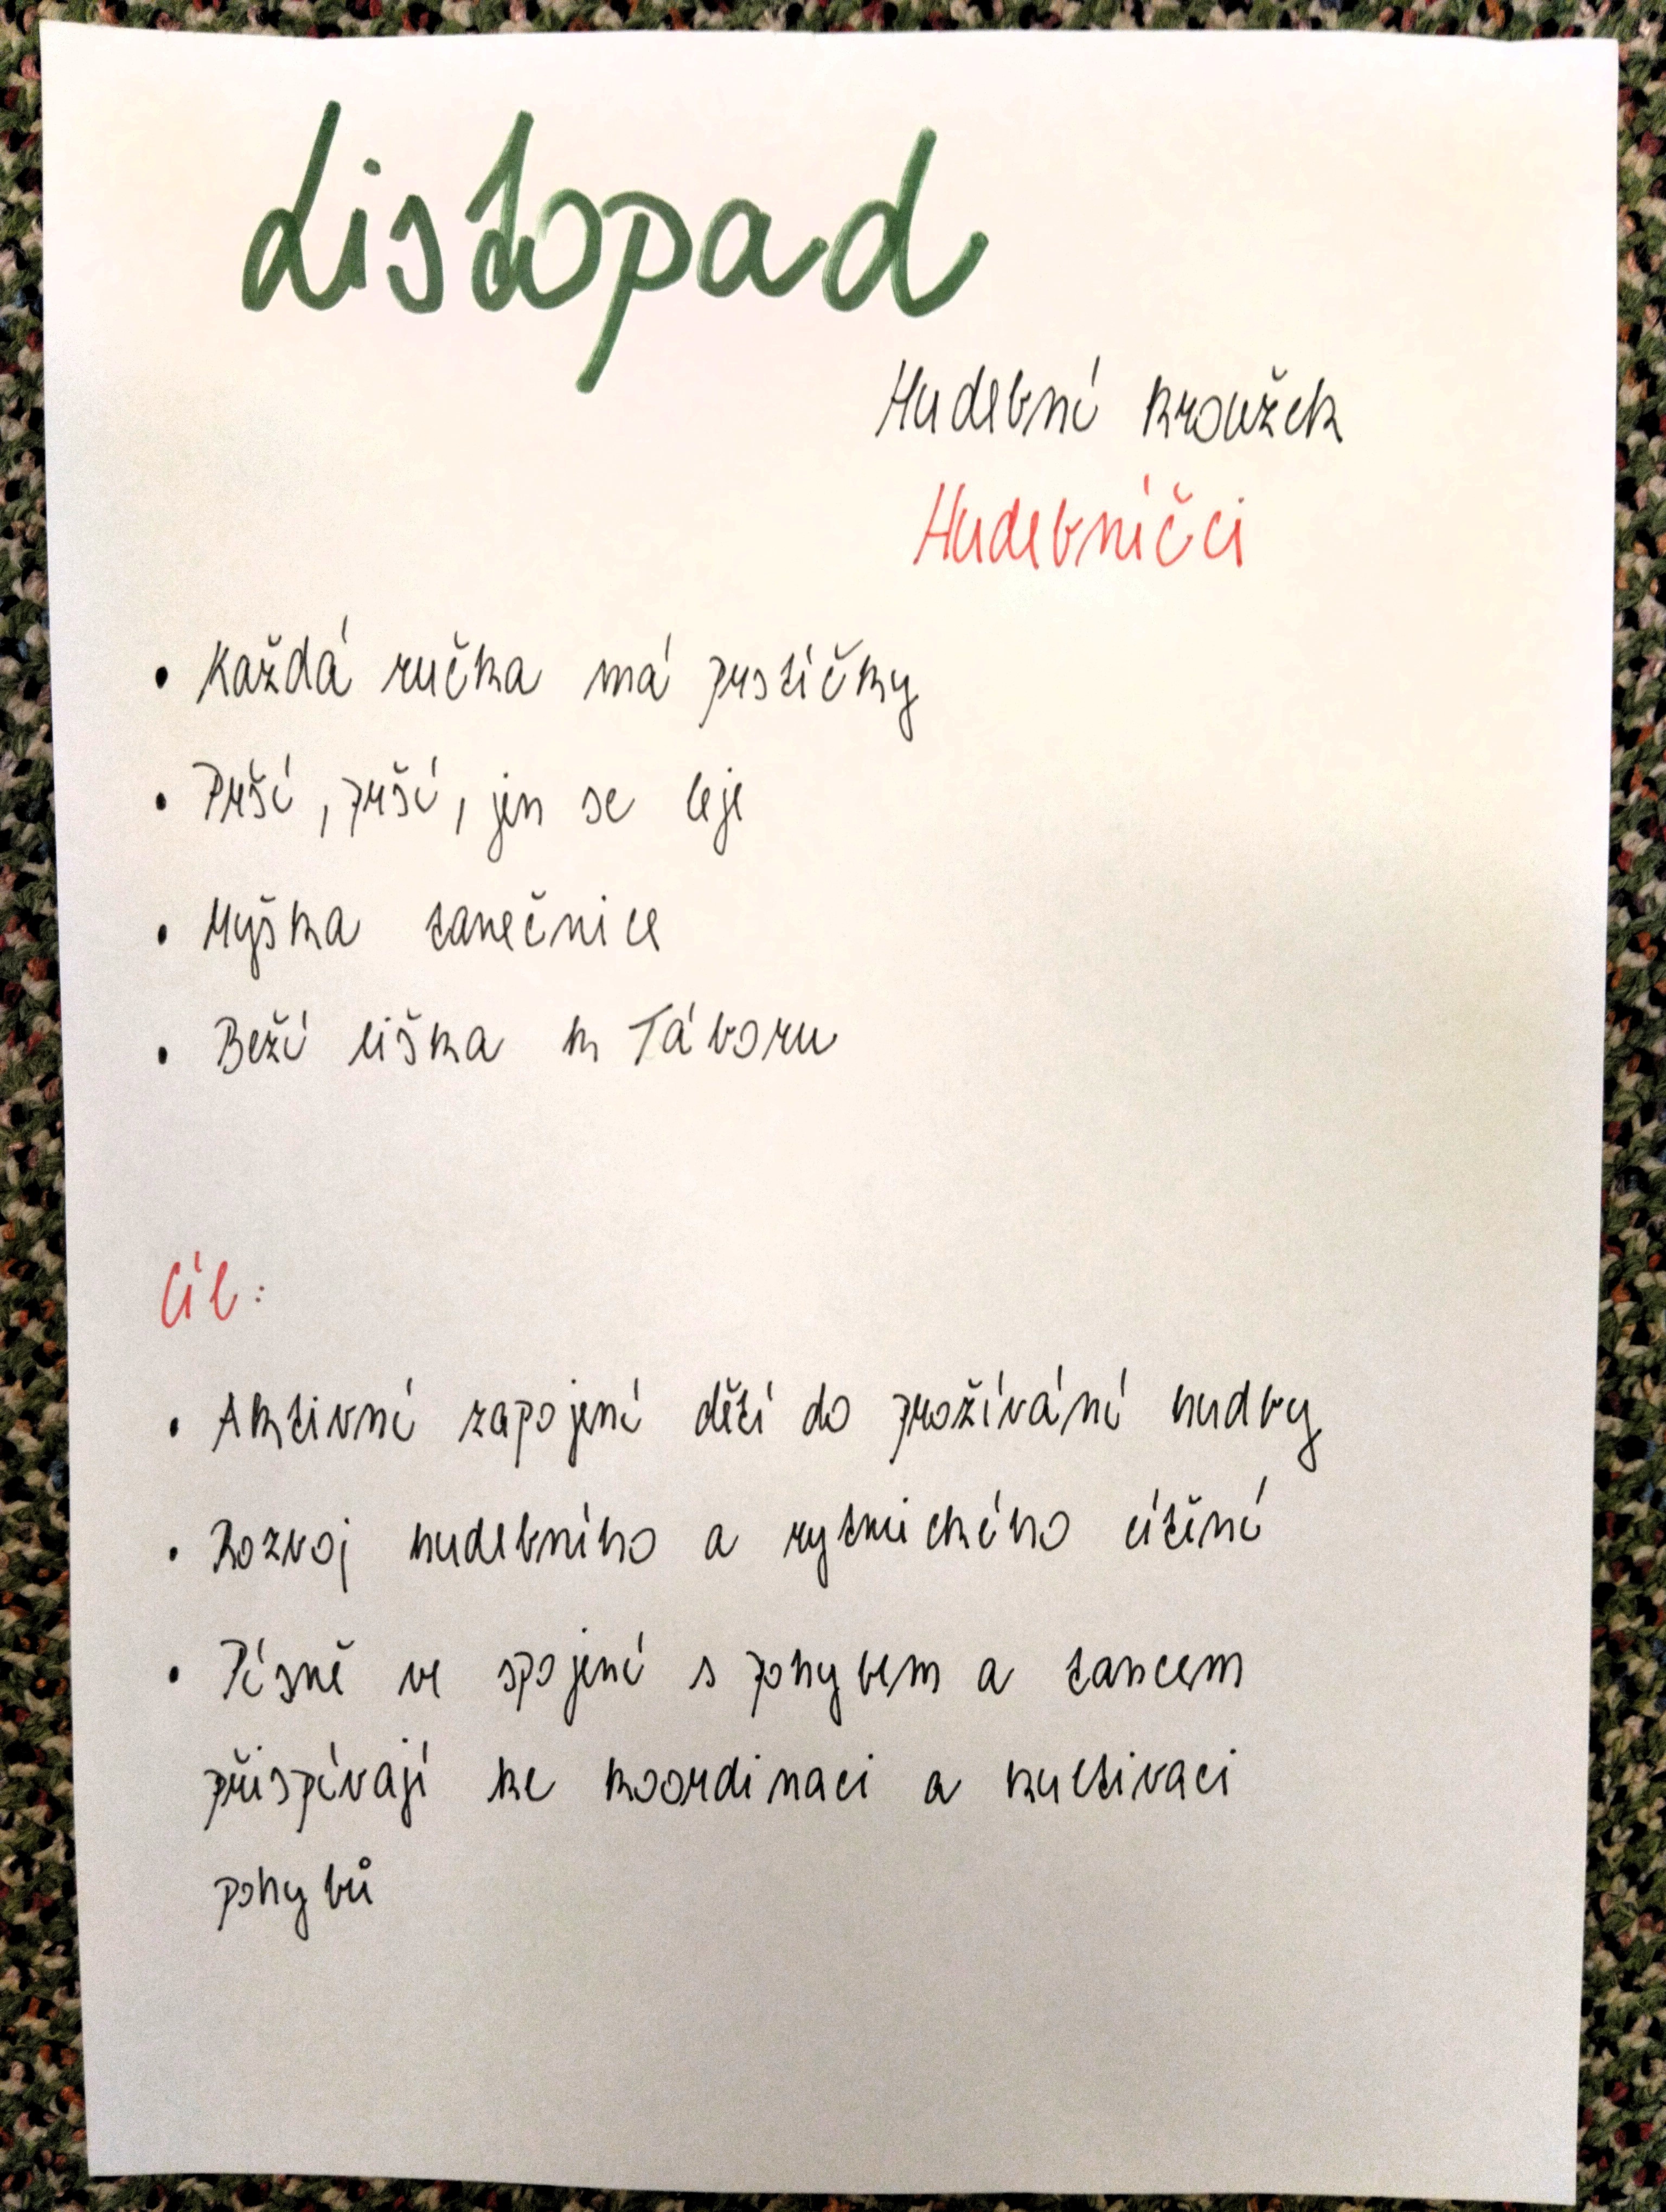 Listopad
Hudební kroužek
Hudebníčci
• Každá ručka má prstíčky
• Prší, prší, jen se leje
• Myška tanečnice
• Beží liška k Táboru
Cíl:
• Aktivní zapojení dětí do prožívání hudby
• Rozvoj hudebního a rytmického cítění
• Písně ve spojení s pohybem a tancem
přispívají ke koordinaci a kultivaci
pohybů